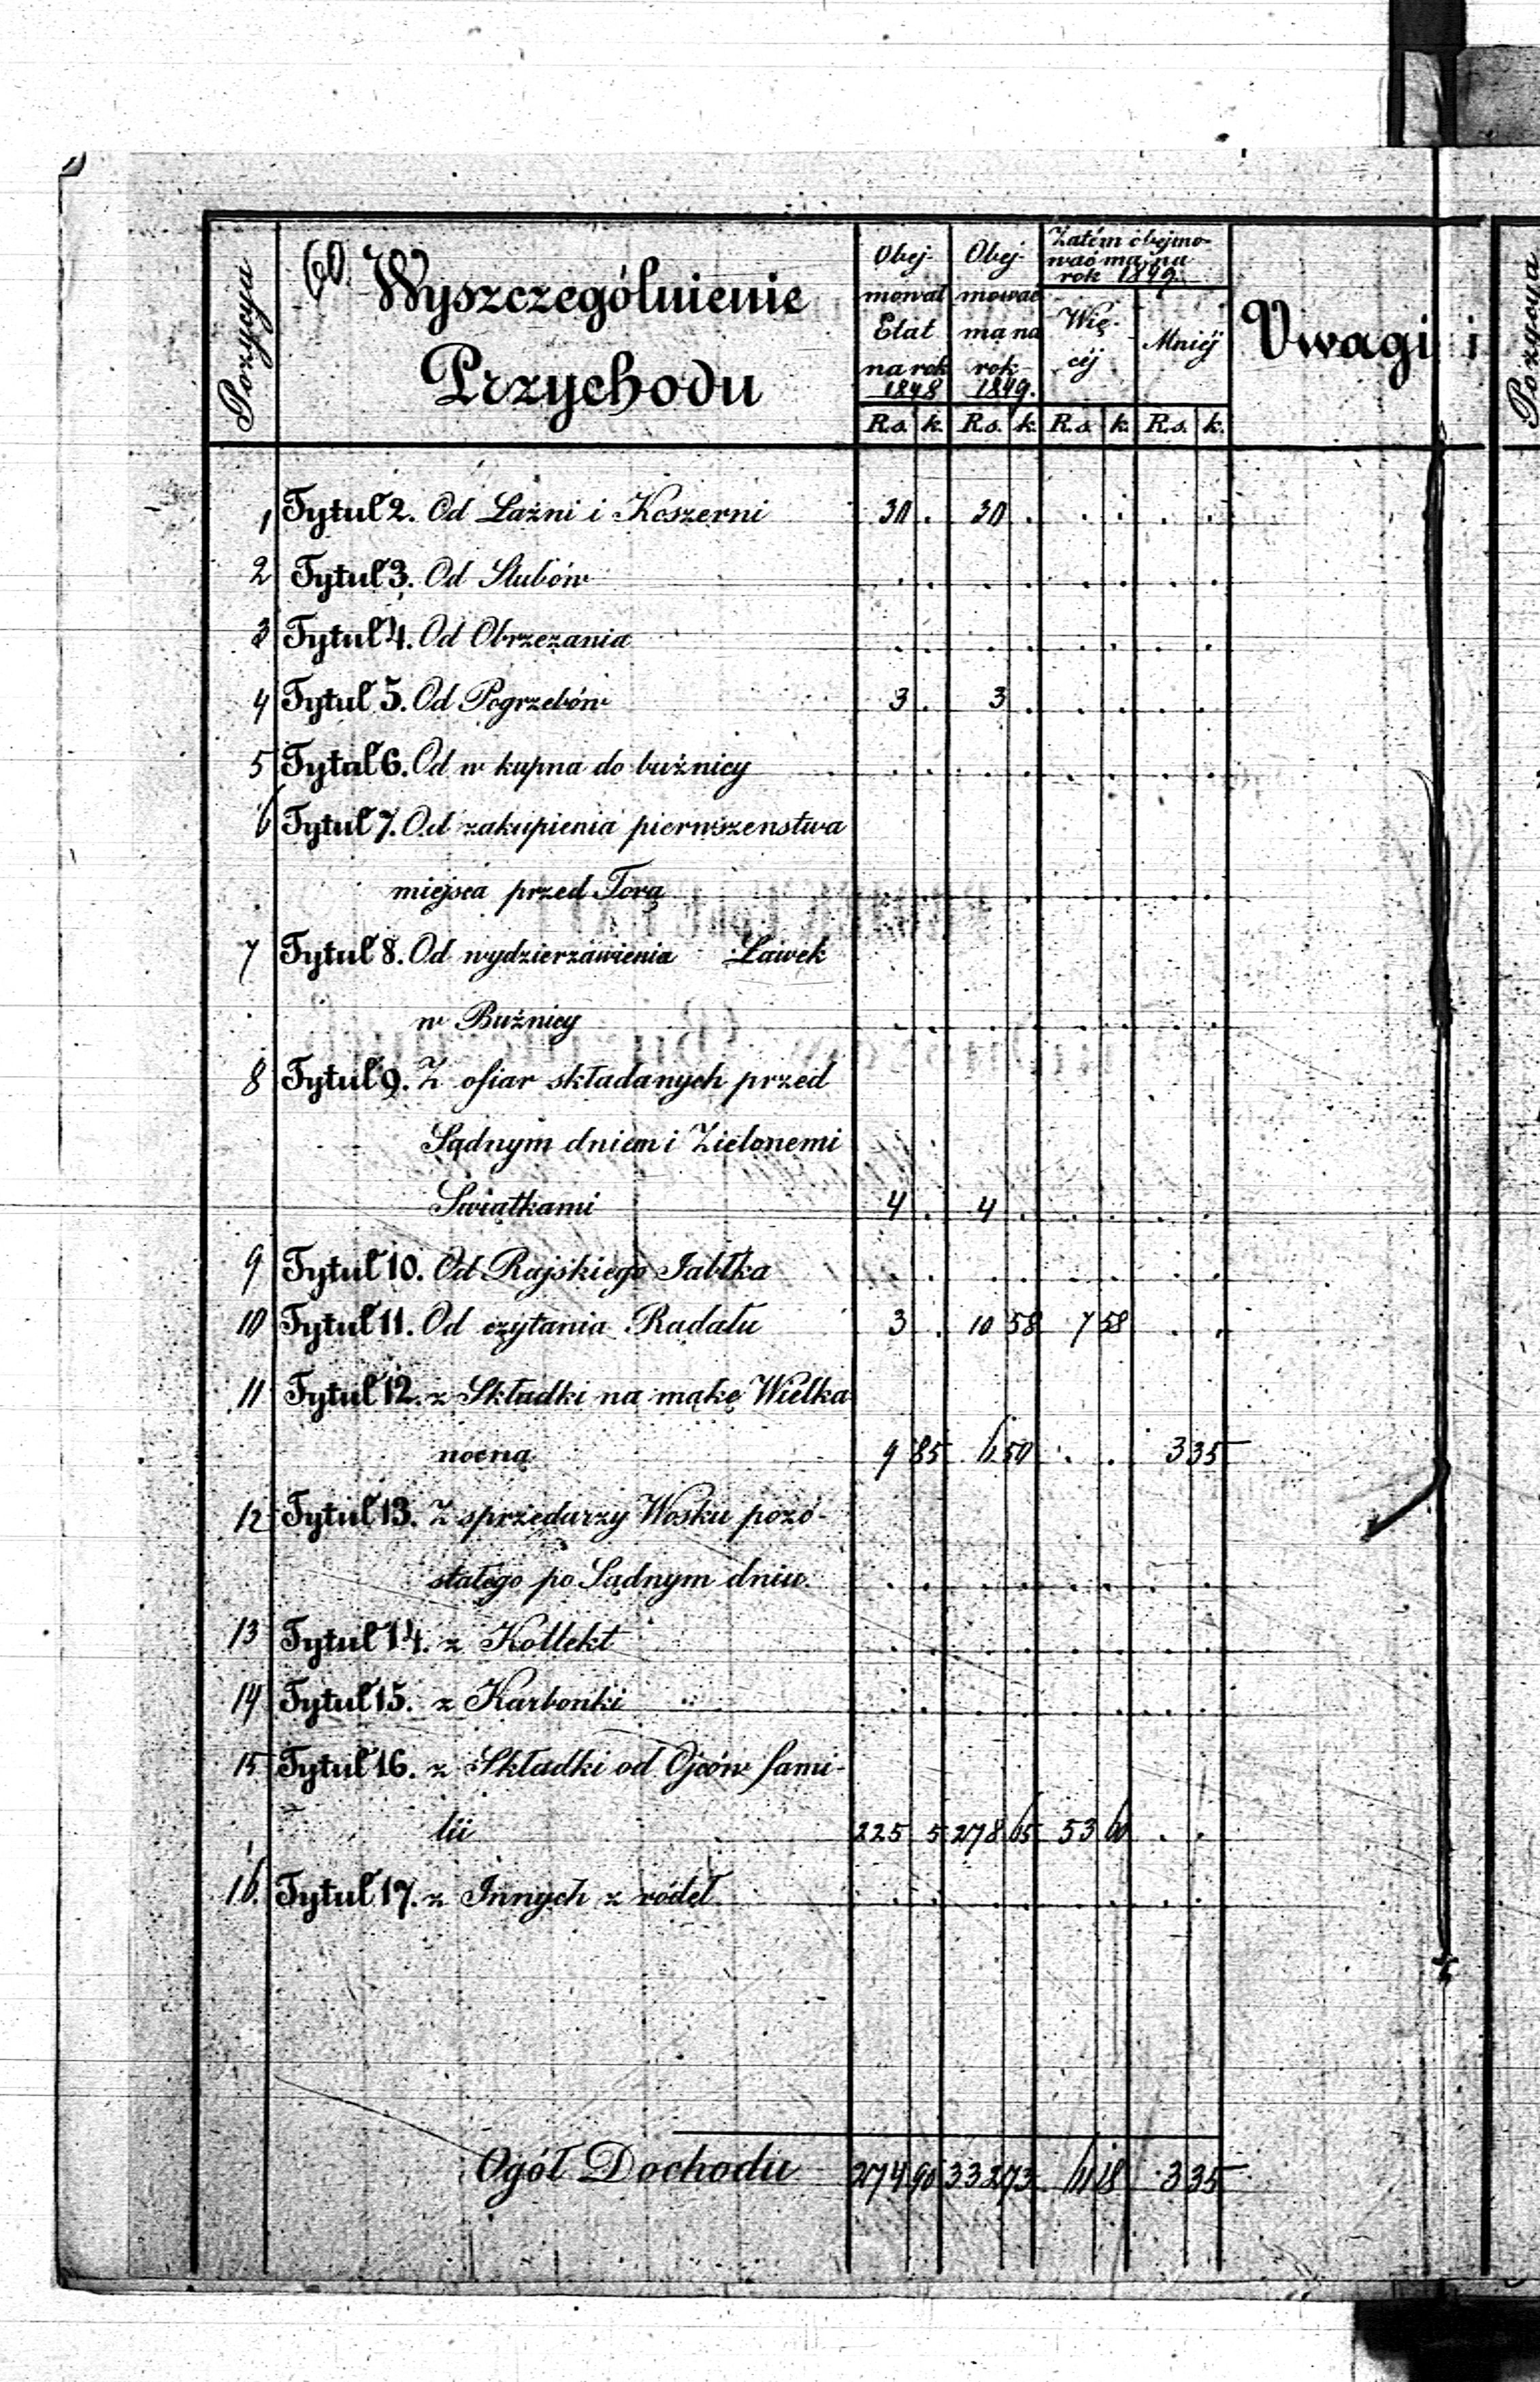 60.
Pozycya
Wyszczególnienie
Przychodu
Obej-
mował
Etat
na rok
1848
Obej-
mować
ma na
rok
1849.
Zatém obejmo-
wać ma na
rok 1849.
Wię-
céj
Mniéj
Uwagi
Pozycya
R.s. k. R.s. k. R.s. k. R.s. k.
1 Tytuł 2. Od Łaźni i Koszerni 30 . 30 . . . . .
2 Tytuł 3. Od Slubów . . . . . . . .
3 Tytuł 4. Od Obrzezania . . . . . . . .
4 Tytuł 5. Od Pogrzebów 3 . 3 . . . . .
5 Tytuł 6. Od w kupna do bużnicy . . . . . . . .
6 Tytuł 7. Od zakupienia pierwszenstwa
miejsca przed Torą . . . . . . . .
7 Tytuł 8. Od wydzierzawienia Ławek
w Bużnicy . . . . . . . .
8 Tytuł 9. Z ofiar składanych przed
Sądnym dniem i Zielonemi
Swiątkami 4 . 4 . . . . .
9 Tytuł 10. Od Rajskiego Jabłka . . . . . . . .
10 Tytuł 11. Od czytania Radału 3 . 10 58 7 58 . .
11 Tytuł 12. z Składki na mąkę Wielka
nocną 9 85 6 50 . . 3 35
12 Tytuł 13. Z sprzedarzy Wosku pozo-
stałego po Sądnym dniu. . . . . . . . .
13 Tytuł 14. z Kollekt . . . . . . . .
14 Tytuł 15. z Karbonki . . . . . . . .
15 Tytuł 16. z Składki od Ojców fami-
lii 225 5 278 65 53 60 . .
16. Tytuł 17. z Innych z ródeł . . . . . . . .
Ogół Dochodu 274 90 332 73 61 18 3 35